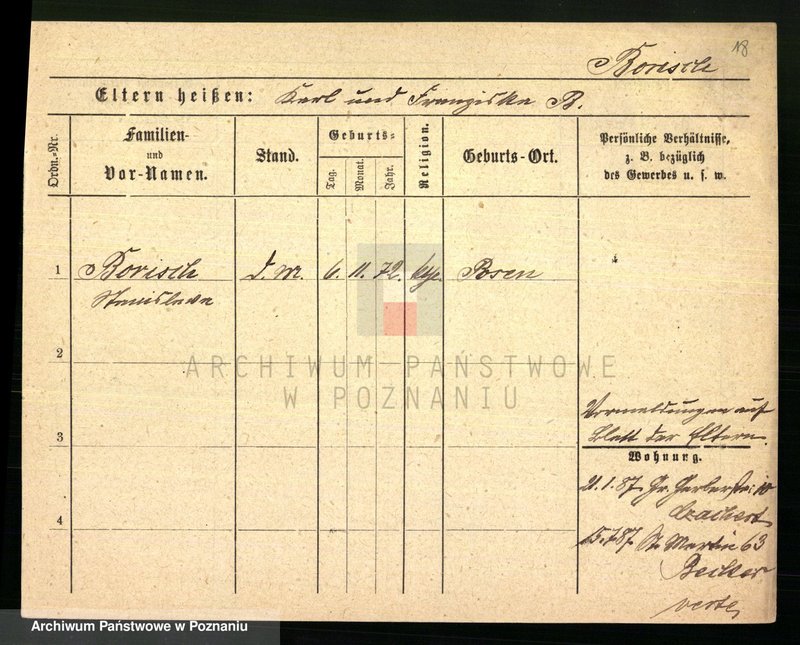 18
Borisch
Eltern heißen: Karl und Franziska B.
Ordn.-Nr.
Familien-
und
Vor-Namen.
Stand.
Geburts-
Tag.
Monat.
Jahr.
Religion.
Geburts-Ort.
Persönliche Verhältnisse,
z. B. bezüglich
des Gewerbes u. s. w.
1 Borisch D. M. 6. 11. 72. kth. Posen
Stanislawa
2
ARCHIWUM PAŃSTWOWE
W POZNANIU
Vormeldungen auf
Blatt der Eltern.
3
Wohnung.
21.1.87 Gr. Gerberstr. 10
4
15.7.87 St. Martin 63
Becker
verte
Archiwum Państwowe w Poznaniu